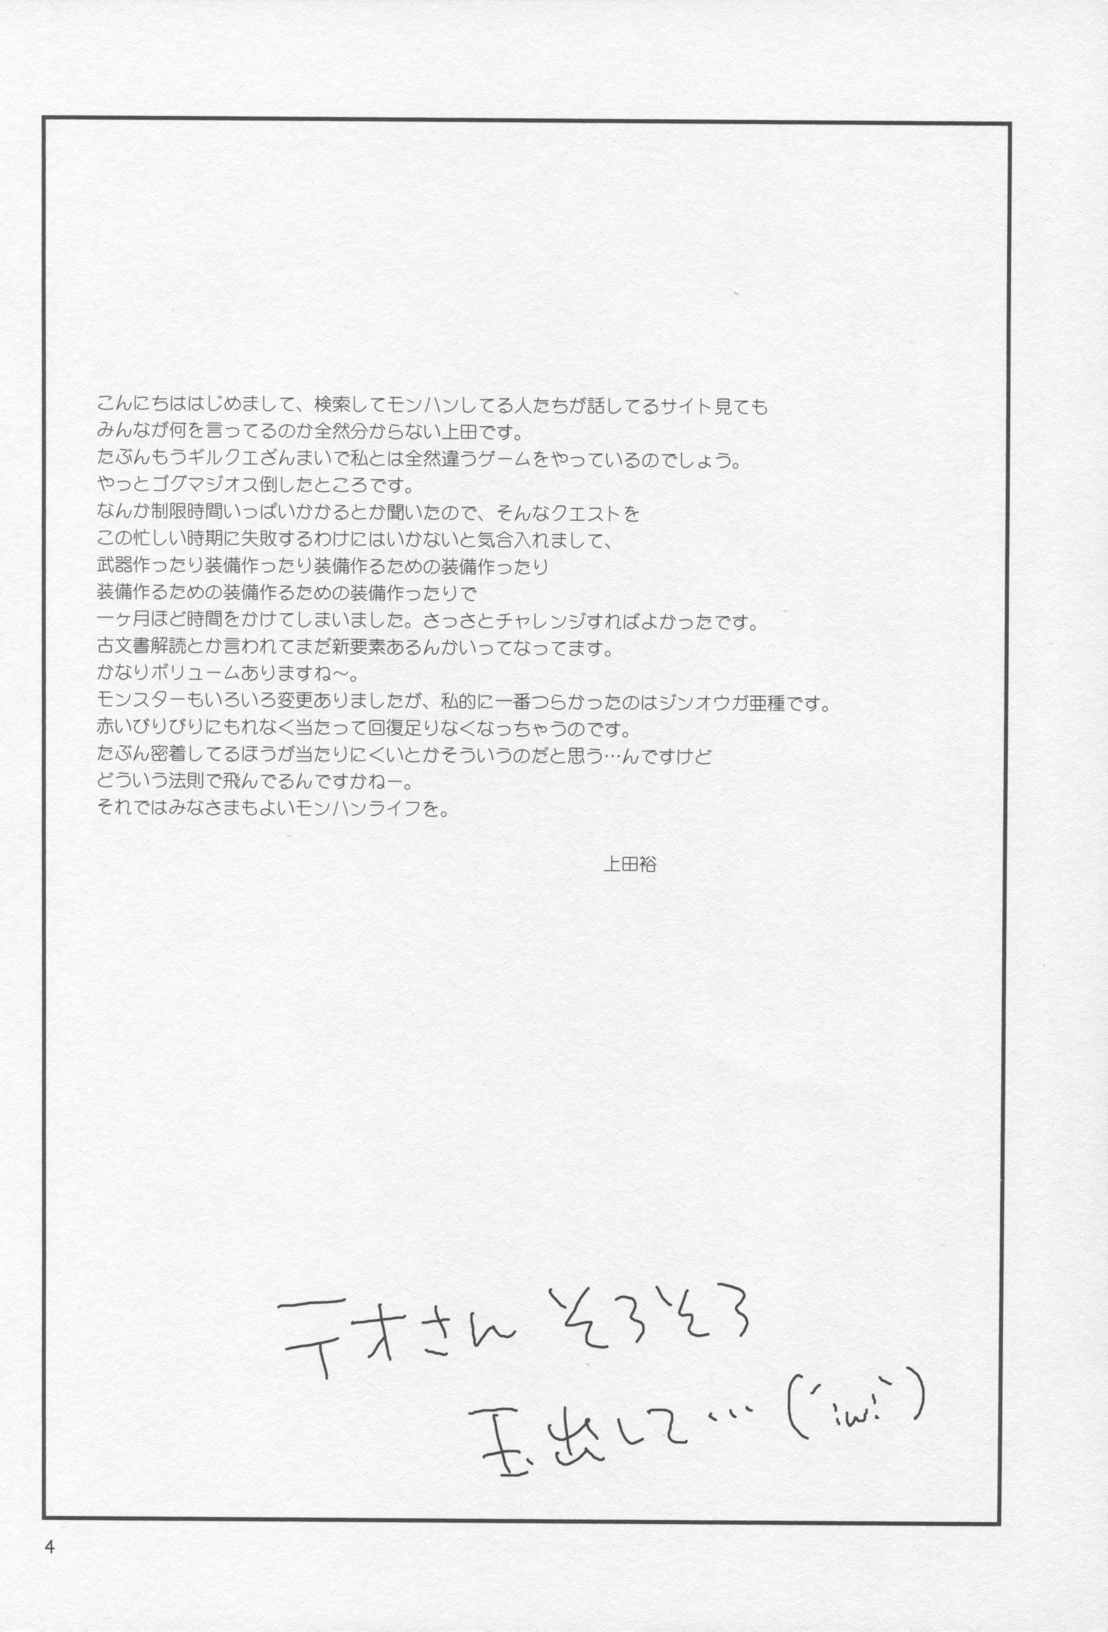 こんにちははじめまして、検索してモンハンしてる人たちが話してるサイト見ても
みんなが何を言ってるのか全然分からない上田です。
たぶんもうギルクエざんまいで私とは全然違うゲームをやっているのでしょう。
やっとゴグマジオス倒したところです。
なんか制限時間いっぱいかかるとか聞いたので、そんなクエストを
この忙しい時期に失敗するわけにはいかないと気合入れまして、
武器作ったり装備作ったり装備作るための装備作ったり
装備作るための装備作るための装備作ったりで
一ヶ月ほど時間をかけてしまいました。さっさとチャレンジすればよかったです。
古文書解読とか言われてまだ新要素あるんかいってなってます。
かなりボリュームありますね～。
モンスターもいろいろ変更ありましたが、私的に一番つらかったのはジンオウガ亜種です。
赤いびりびりにもれなく当たって回復足りなくなっちゃうのです。
たぶん密着してるほうが当たりにくいとかそういうのだと思う…んですけど
どういう法則で飛んでるんですかねー。
それではみなさまもよいモンハンライフを。
上田裕
テオさん そろそろ
玉出して…(´;ω;`)
4